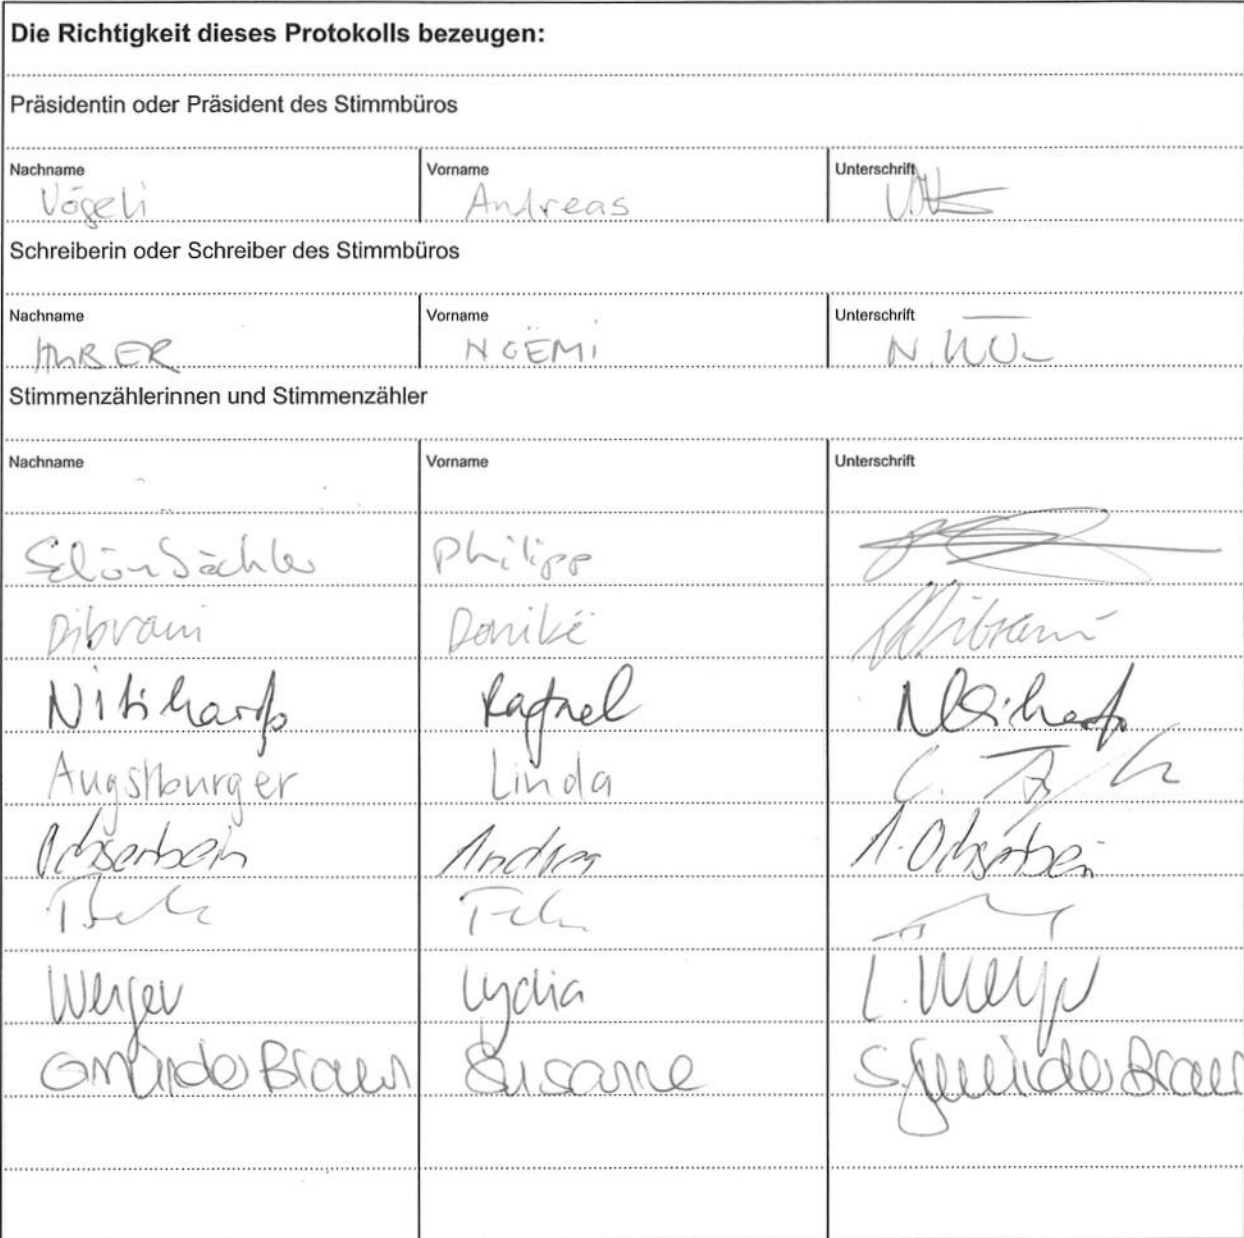 Die Richtigkeit dieses Protokolls bezeugen:
Präsidentin oder Präsident des Stimmbüros
Nachname Vorname Unterschrift
Vögeli Andreas
Schreiberin oder Schreiber des Stimmbüros
Nachname Vorname Unterschrift
HUBER NOËMI N.
Stimmenzählerinnen und Stimmenzähler
Nachname Vorname Unterschrift
Schönbächler Philipp
Dibrani Donikë Dibrani
Rafael
Augstburger Linda
Ochsenbein Andrea A. Ochsenbein
Lydia L.
Gmünder Braun Susanne S. Gmünder Braun